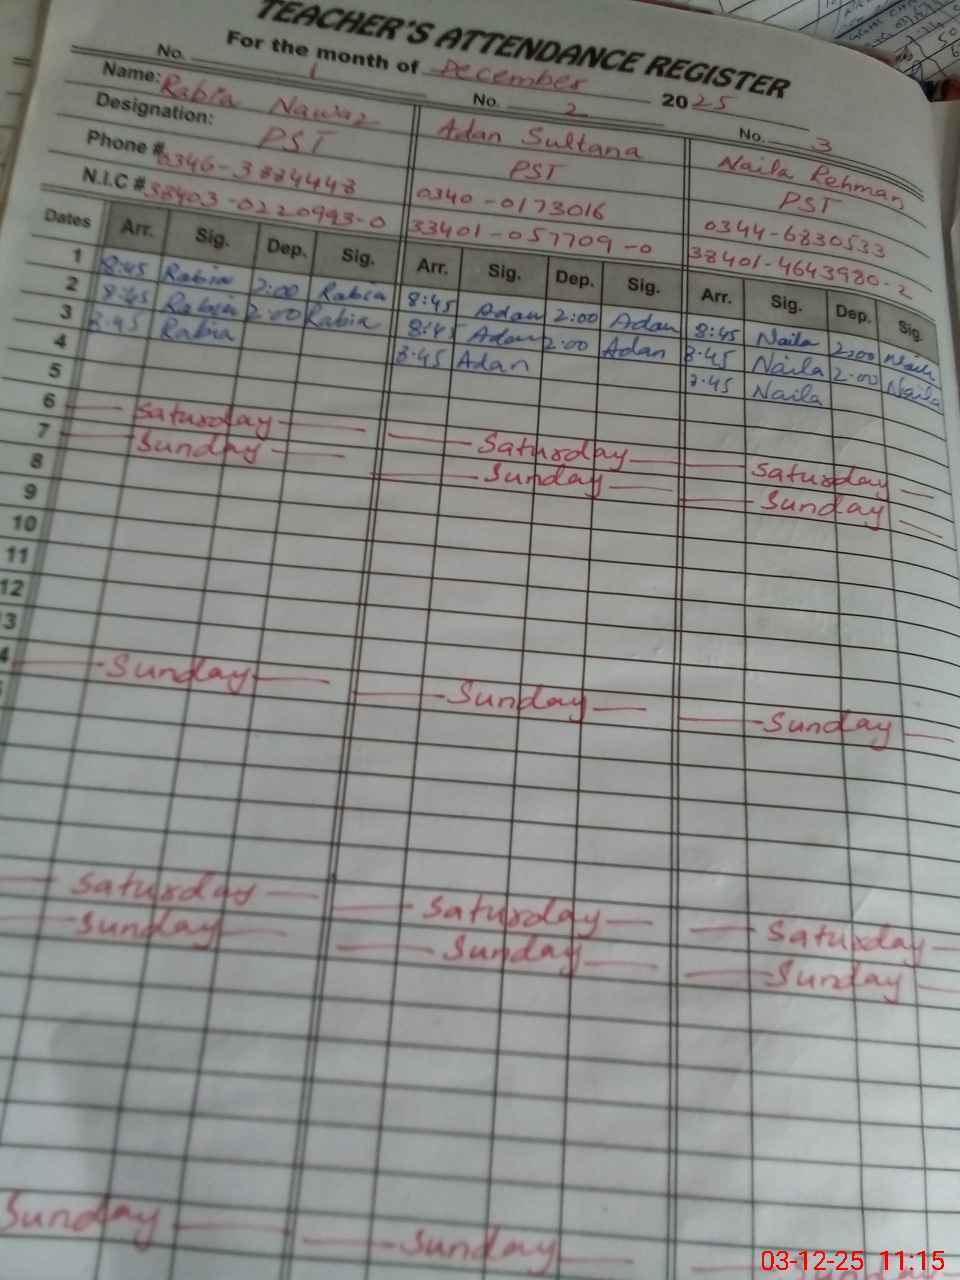 TEACHER'S ATTENDANCE REGISTER
For the month of December 2025
No. 1 No. 2 No. 3
Name: Rabia Nawaz Adan Sultana Naila Rehman
Designation: PST PST PST
Phone # 0346-3884448 0340-0173016 0344-6830533
N.I.C # 38403-0220993-0 33401-057709-0 38401-4643980-2
Dates Arr. Sig. Dep. Sig. Arr. Sig. Dep. Sig. Arr. Sig. Dep. Sig.
1 8:45 Rabia 2:00 Rabia 8:45 Adan 2:00 Adan 8:45 Naila 2:00 Naila
2 8:45 Rabia 2:00 Rabia 8:45 Adan 2:00 Adan 8:45 Naila 2:00 Naila
3 8:45 Rabia 8:45 Adan 8:45 Naila
4
5
6 Saturday Saturday Saturday
7 Sunday Sunday Sunday
8
9
10
11
12
13
4 Sunday Sunday Sunday
Saturday Saturday Saturday
Sunday Sunday Sunday
Sunday Sunday
03-12-25 11:15